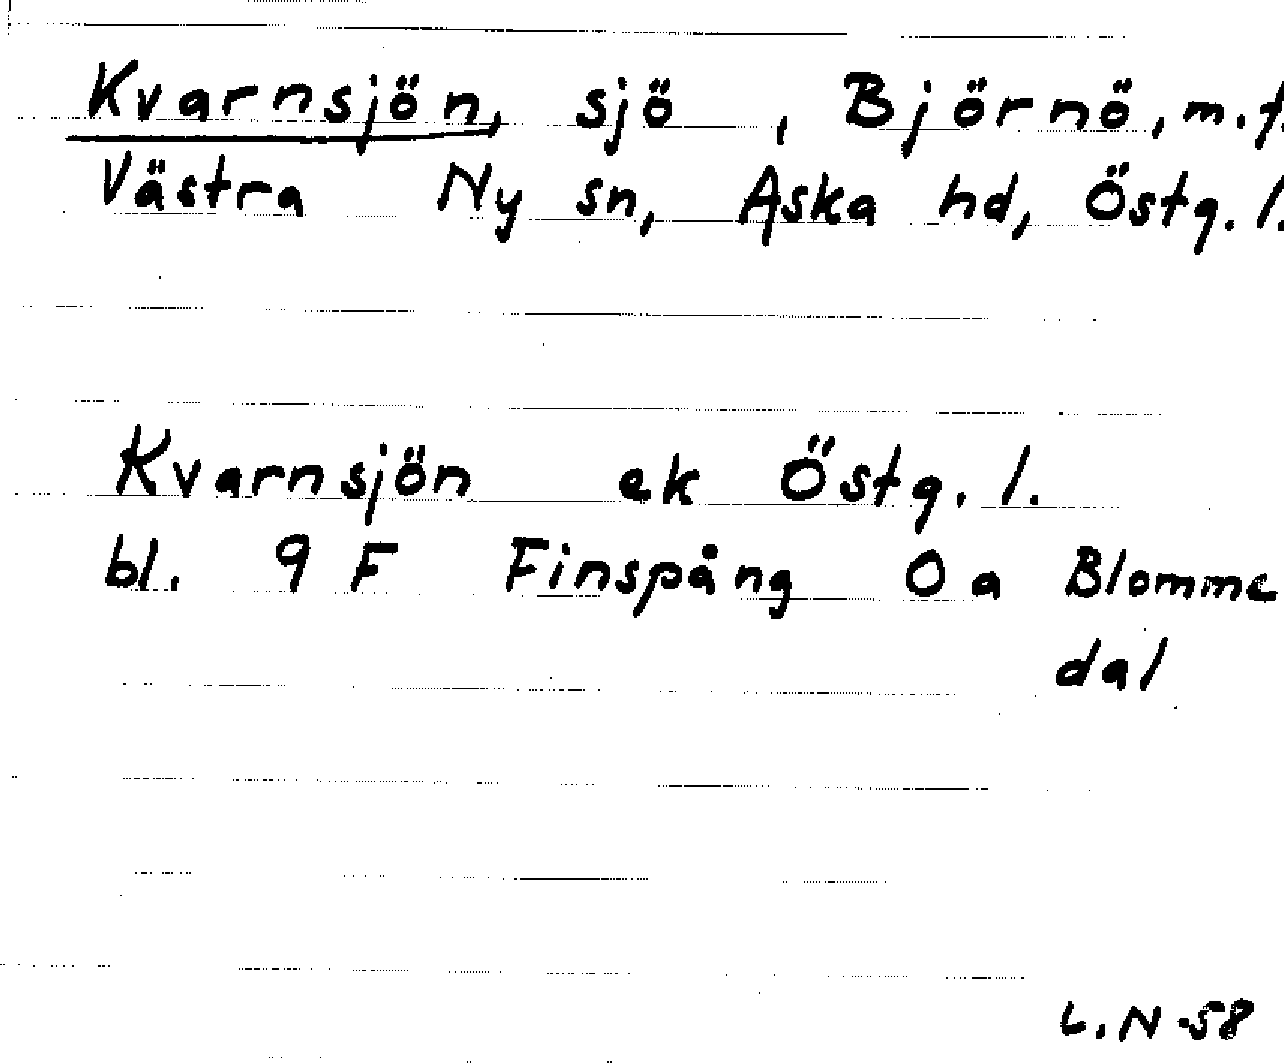 Kvarnsjön, sjö, Björnö, m.f.
Västra Ny sn, Aska hd, Östg. l.
Kvarnsjön ek Östg. l.
bl. 9 F Finspång 0 a Blomme
dal
L.N-58